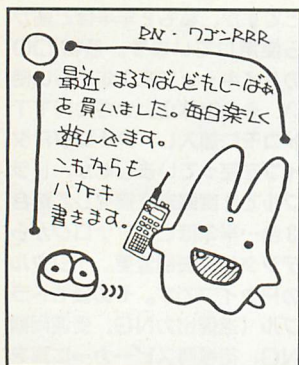 PN・ワゴンRRR
最近 まるちばんどれしーばぁ
を買いました。毎日楽しく
遊んでます。
これからも
ハガキ
書きます。